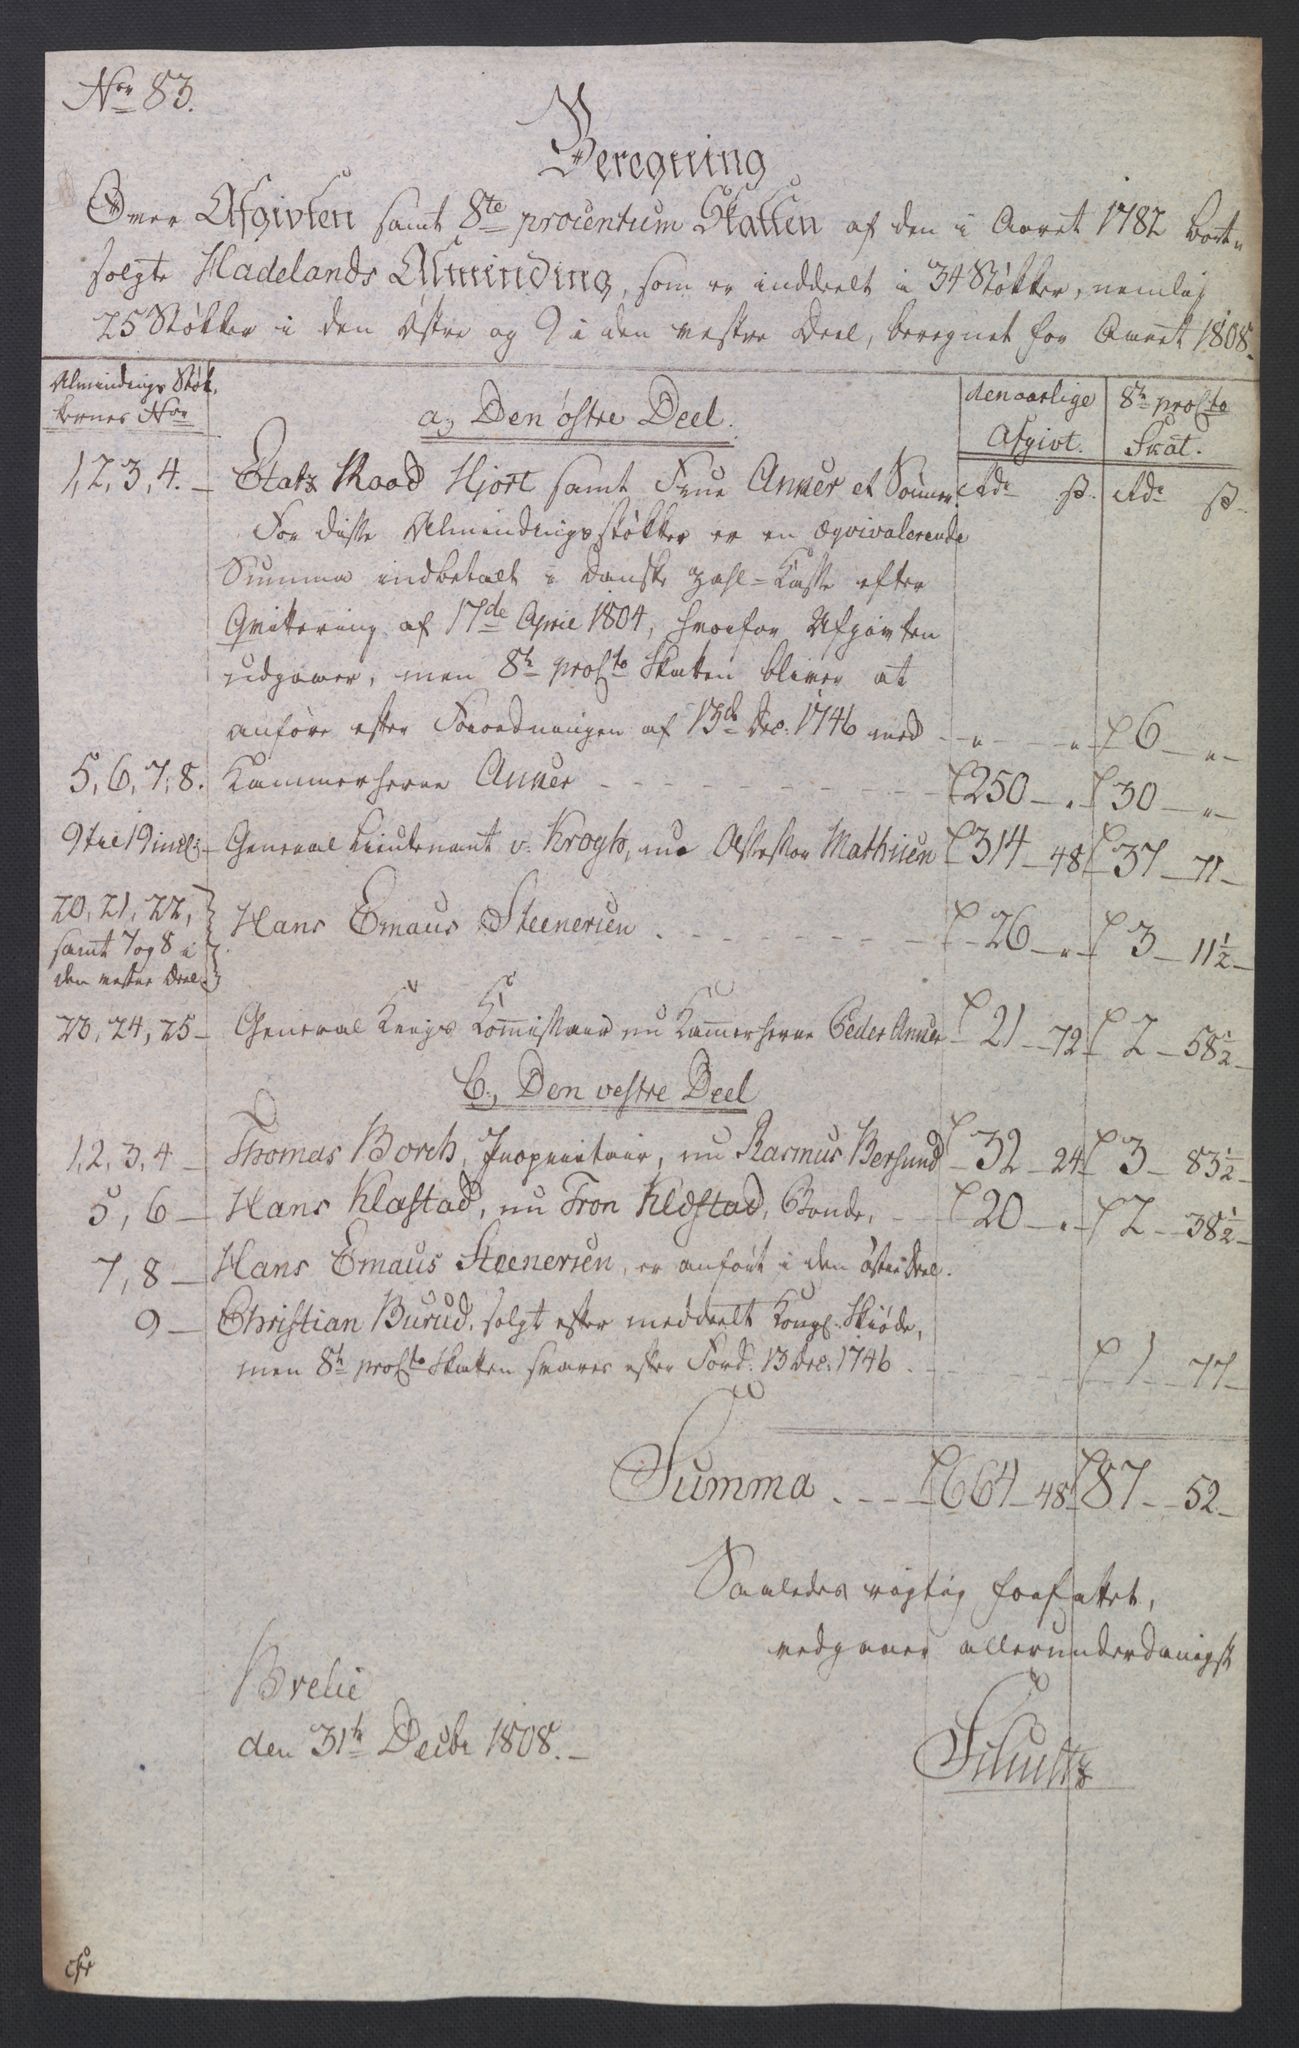 Nor 83.
Beregning
Over Afgivten samt 8te procentum Skatten af den i Aaret 1782 bort-
solgte Hadelands Alminding, som er inddeelt i 34 Støkker, nemlig
25 Støkker i den østre og 9 i den vestre Deel, beregnet for Aaret 1808.
Almindings Støk-
kernes Nor
a, Den østre Deel.
den aarlige Afgivt.
8te proCto Skat.
1, 2, 3, 4. — Etatz Raad Hjort samt Frue Anker et Sønner. Rdr ß. Rdr ß.
For disse Almindingsstøkker er en eqvivalerende
Summa indbetalt i danske Zahl-Kasse efter
Qvittering af 17de April 1804, hvorfor Afgivten
udgaaer, men 8te proCto Skatten bliver at
anføre efter Forordningen af 13de Dec. 1746 med - " - - " 6 — " -
5, 6, 7, 8. Kammerherre Anker - - - 250 — " 30 — " -
9 til 19 incl: — General Lieutenant v. Krogh, nu Assessor Mathiesen 314 — 48 37 — 71 —
20, 21, 22,
samt 7 og 8 i
den vestre Deel.
Hans Emaus Steenersen - - - 26 — " 3 — 11 1/2 —
23, 24, 25 — General Krigs Kommissair nu Kammerherre Peder Anker 21 — 72 2 — 58 1/2 —
b, Den vestre Deel
1, 2, 3, 4 — Thomas Borch, Proprietair, nu Rasmus Bersund 32 — 24 3 — 83 1/2 —
5, 6 — Hans Klæstad, nu Tron Klæstad, Bonde, - - 20 — " 2 — 38 1/2 —
7, 8 — Hans Emaus Steenersen, er anført i den østre Deel.
9 — Christian Burud, solgt efter meddeelt Kongl. Skiøde,
men 8te proCto Skatten svares efter Ford. 13 Dec. 1746 - - - 1 — 77 —
Summa - - - 664 — 48 87 — 52 —
Saaledes rigtig forfattet,
vedgaaer allerunderdanigst
Brelie
den 31te Decbr 1808. —
Schultz